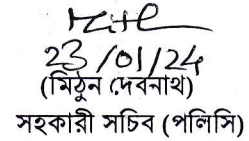 23/01/24
(মিঠুন দেবনাথ)
সহকারী সচিব (পলিসি)